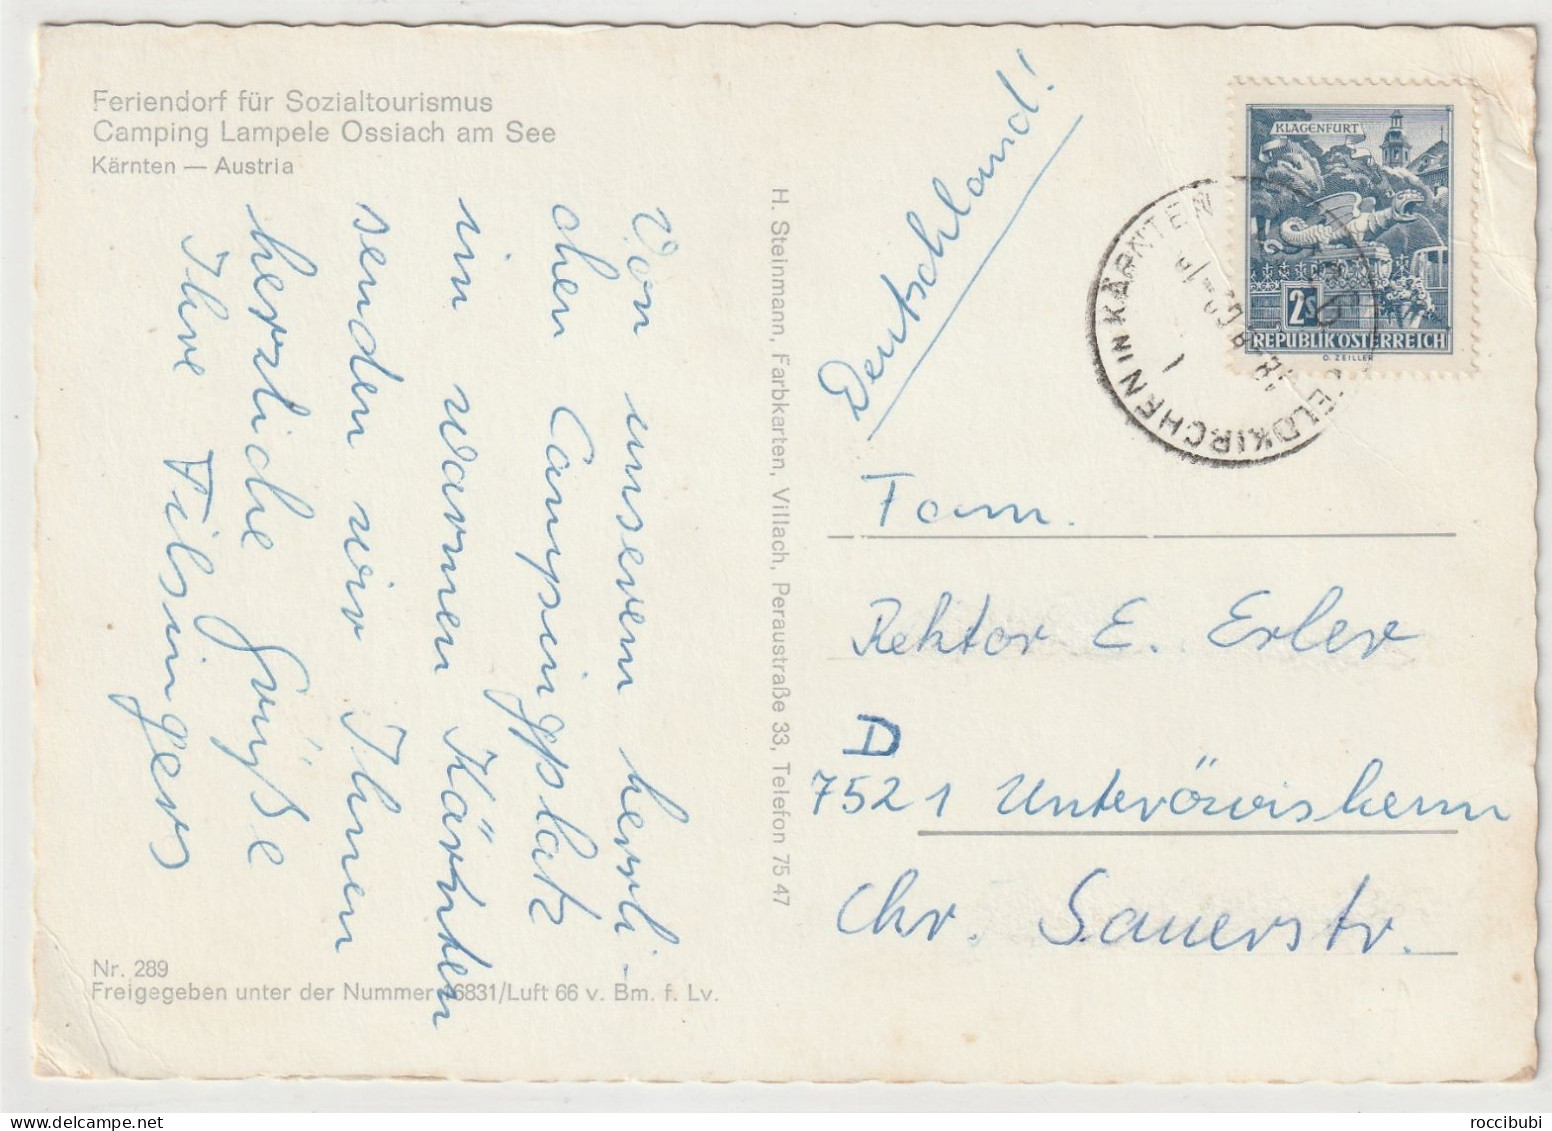 Feriendorf für Sozialtourismus
Camping Lampele Ossiach am See
Kärnten — Austria
Von unserem herrli-
chen Campingplatz
im warmen Kärnten
senden wir Ihnen
herzliche Grüße
Ihre Filsingers
Nr. 289
Freigegeben unter der Nummer 6831/Luft 66 v. Bm. f. Lv.
H. Steinmann, Farbkarten, Villach, Peraustraße 33, Telefon 75 47
Deutschland!
KLAGENFURT
2s
REPUBLIK ÖSTERREICH
O. ZEILLER
FELDKIRCHEN IN KÄRNTEN
1
Fam.
Rektor E. Erler
D
7521 Unteröwisheim
Chr. Sauerstr.
roccibubi